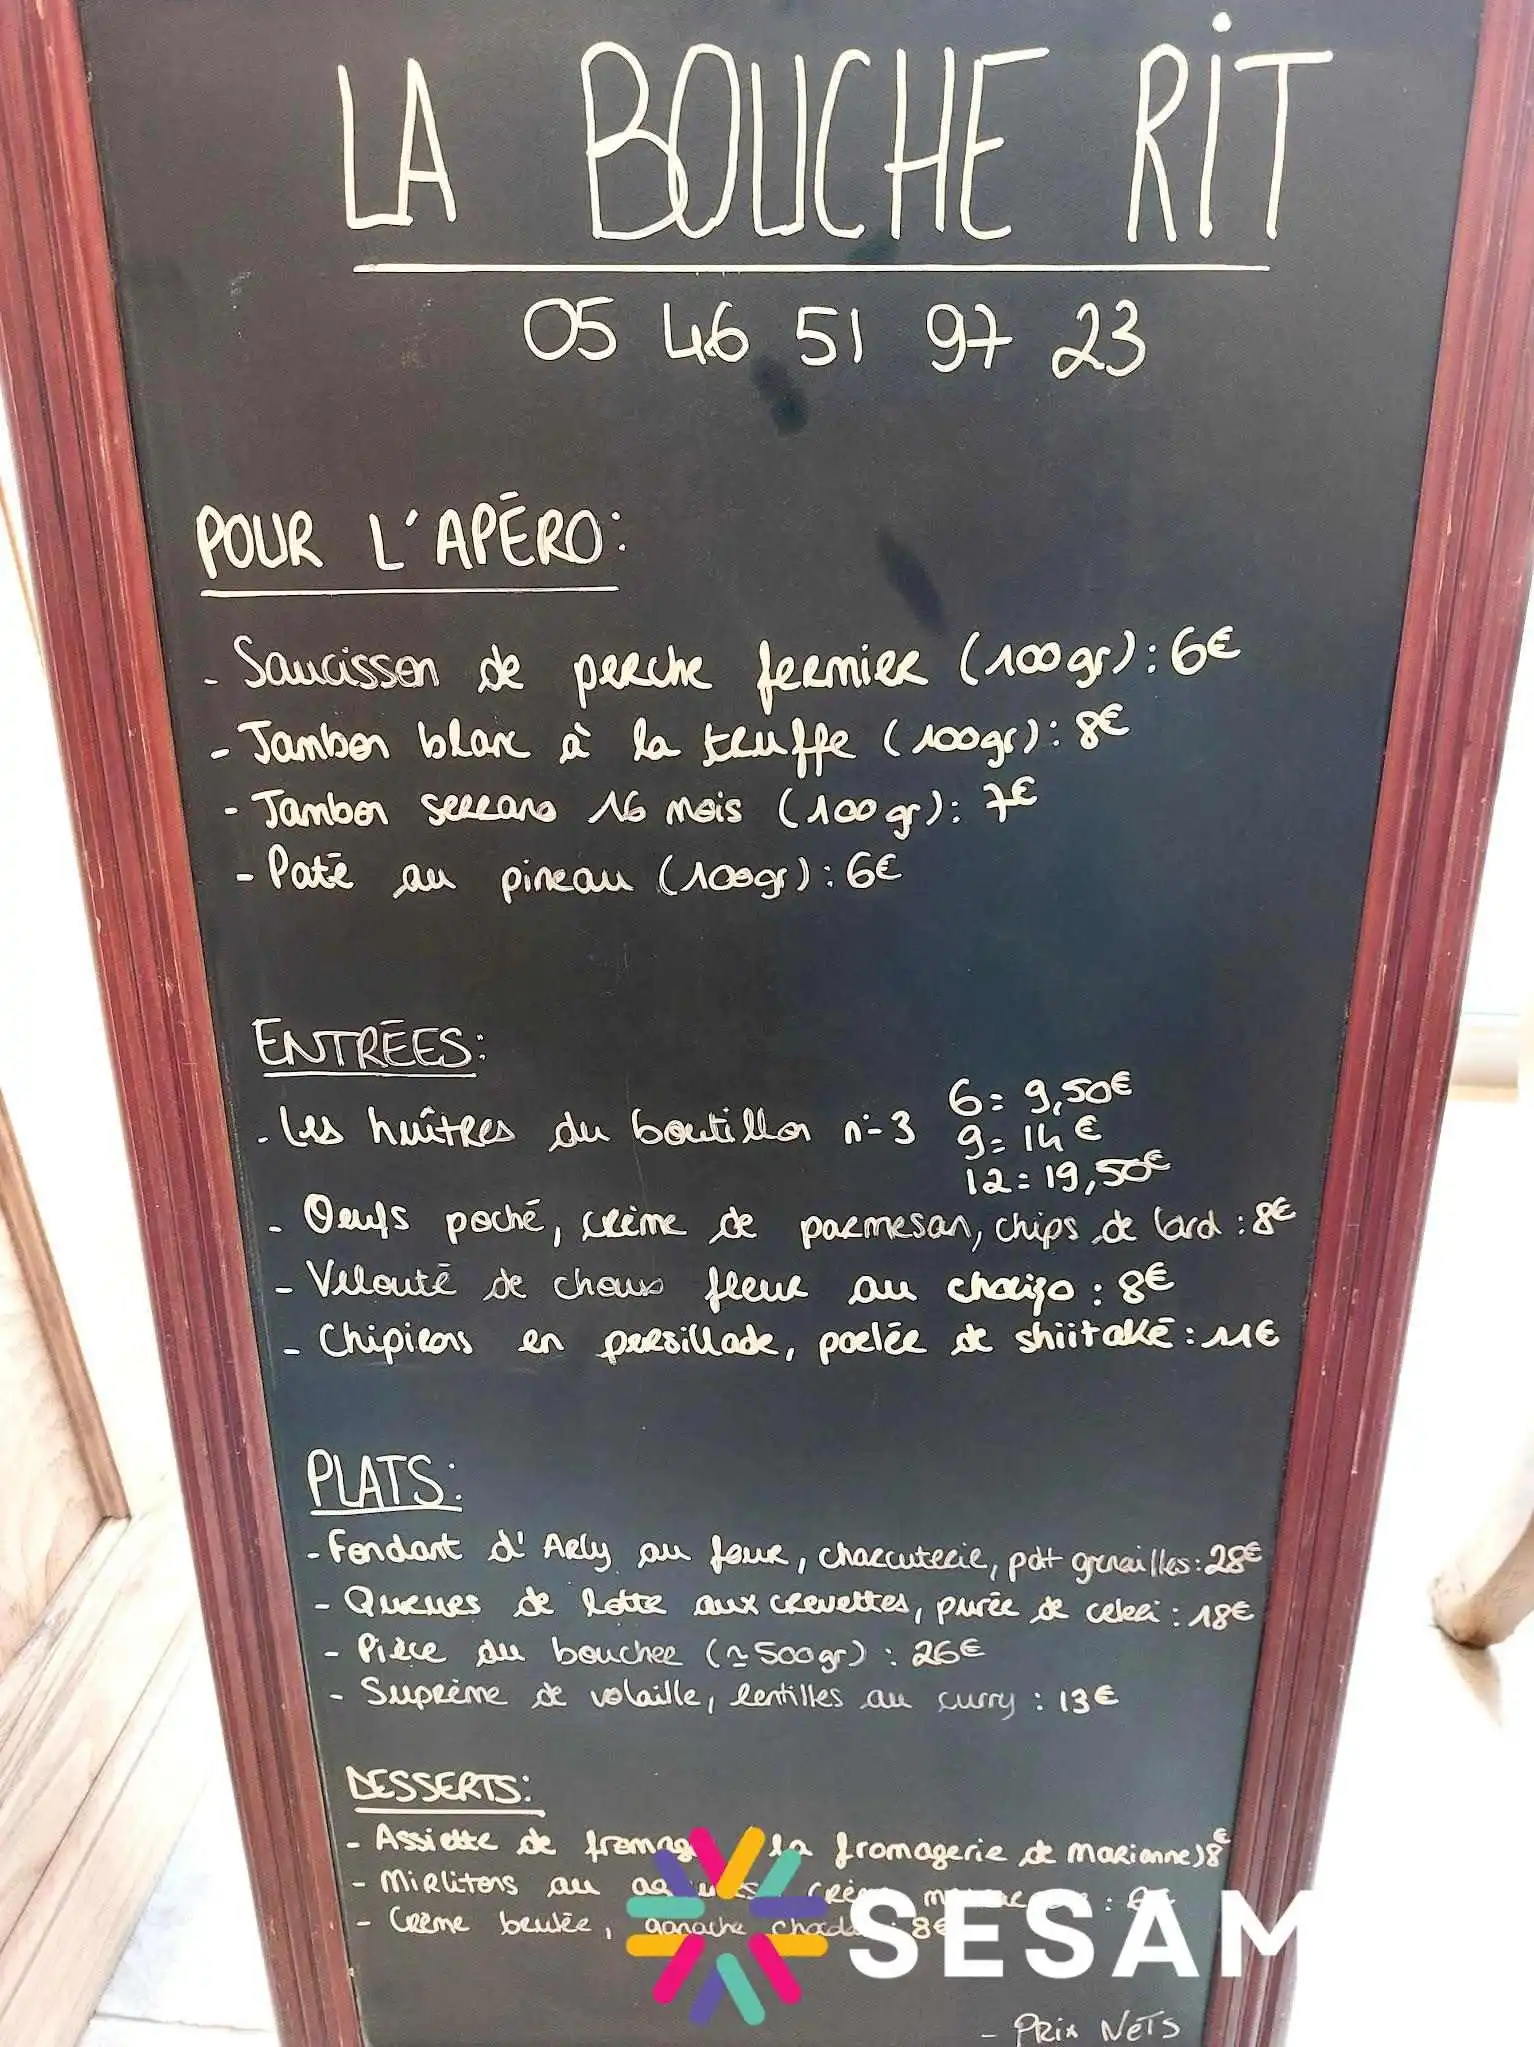 LA BOUCHE RIT
05 46 51 97 23
POUR L'APÉRO:
- Saucisson de perche fermier (100gr): 6€
- Jambon blanc à la truffe (100gr): 8€
- Jambon serrano 16 mois (100gr): 7€
- Paté au pineau (100gr): 6€
ENTRÉES:
6= 9,50€
- Les huîtres du boutillon n°3
9= 14€
12= 19,50€
- Oeufs poché, crème de parmesan, chips de lard: 8€
- Velouté de choux fleur au chorizo: 8€
- Chipirons en persillade, poelée de shiitaké: 11€
PLATS:
- Fondant d'Arly au four, charcuterie, pdt grenailles: 28€
- Queues de lotte aux crevettes, purée de celeri: 18€
- Pièce du boucher (≃500gr): 26€
- Suprême de volaille, lentilles au curry: 13€
DESSERTS:
- Assiette de la fromagerie de Marianne) 8€
- Mirlitons au
- Crème brulée, ganache 8€
SESAM
- Prix Nets